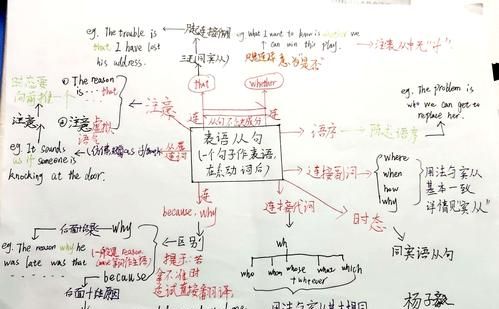 eg. The trouble is
that I have lost
his address.
只起连接作用
主(同宾从)
that
eg what I want to know is whether we
can win this play.
意为"是否"
whether
注意从中无"if"
连
连
从句不缺成分
表语从句
(一个句子作表语,
在系动词后)
① The reason
is ... that
注意
② 注意虚拟
语气
注意
eg. It sounds
as if someone is
knocking at the door.
语序
陈述语序
eg. The problem is
who we can get to
replace her.
连接副词
where
when
how
why
用法与宾从
基本一致
详情见宾从
时态
同宾语从句
连接代词
wh
who
whom
whose
what
which
+ whatever
连
because, why
区别
why
后面+结果
eg. The reason why he
was late was that
because
后面+结原因
提示: 若
拿不准时
边试直接翻译
用法与宾从基本相同
杨子毅